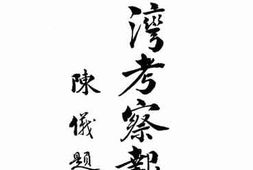 灣考察報
陳儀題